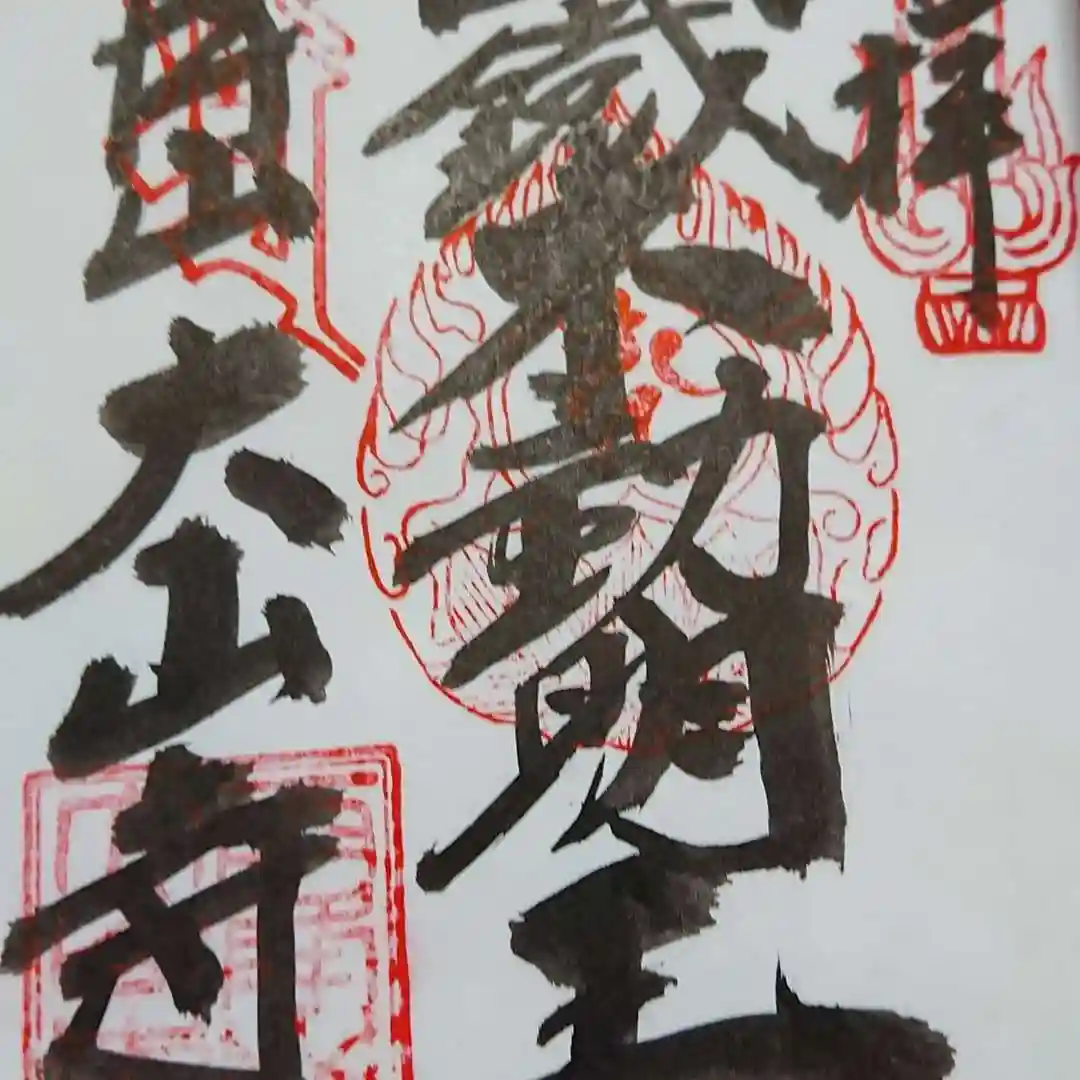 拝
鐵不動明王
大山寺